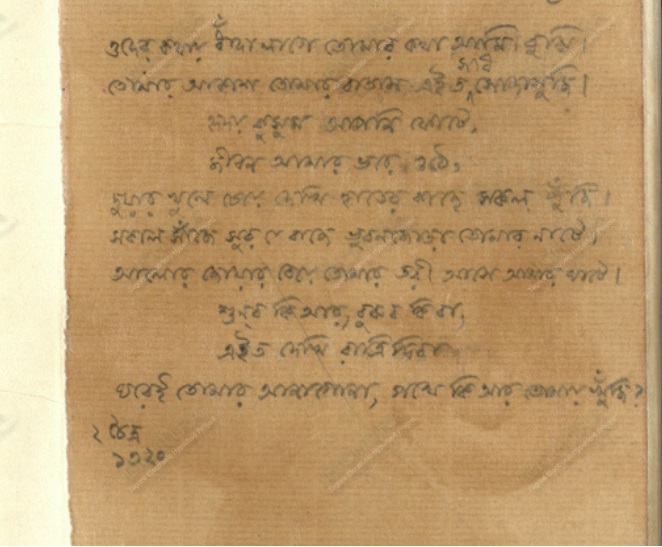 ওদের কথায় ধাঁদা লাগে তোমার কথা আমি বুঝি।
তোমার আকাশ তোমার বাতাস এইত সবি সোজাসুজি।
হৃদয় কুসুম আপনি ফোটে,
জীবন আমার ভরে ওঠে,
দুয়ার খুলে চেয়ে দেখি হাতের কাছে সকল পুঁজি।
সকাল সাঁজে সুর যে বাজে ভুবনজোড়া তোমার নাটে,
আলোর জোয়ার বেয়ে তোমার তরী আসে আমার ঘাটে।
শুনব কি আর, বুঝব কিবা,
এইত দেখি রাত্রি দিবা
ঘরেই তোমার আনাগোনা, পথে কি আর তোমায় খুঁজি?
২ চৈত্র
১৩২০